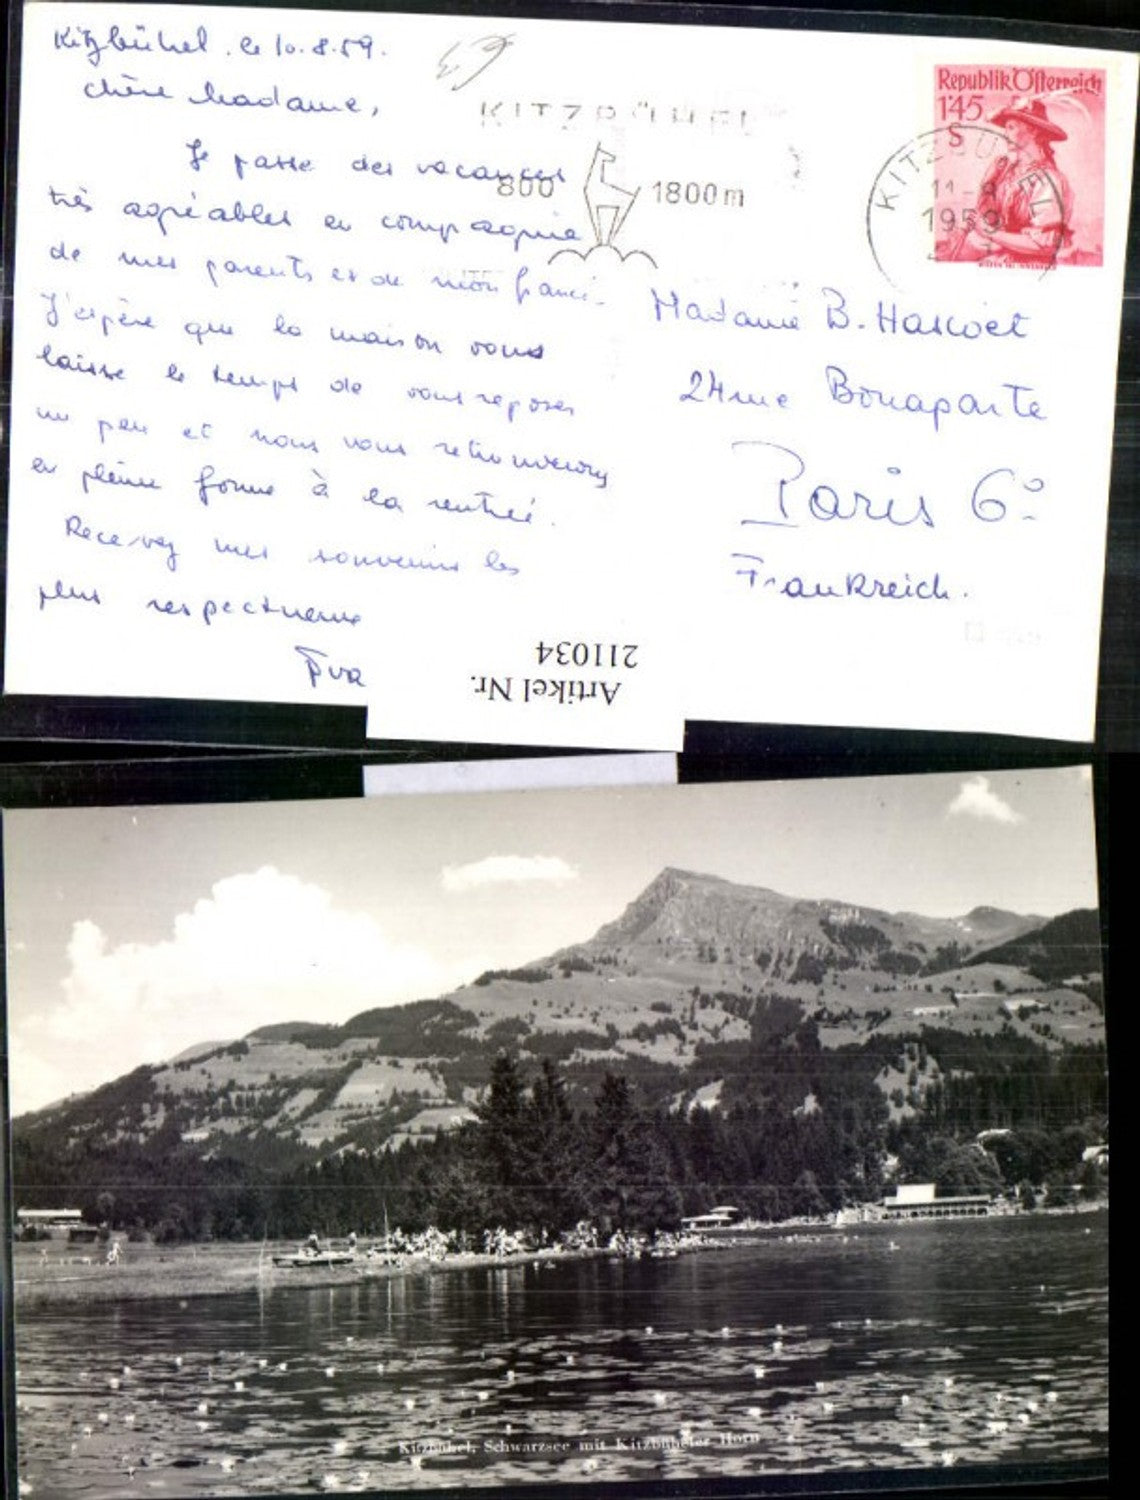 Kitzbühel. le 10.8.59.
Chère Madame,
Je passe des vacances
très agréables en compagnie
de mes parents et de mon fiancé.
J'espère que la maison vous
laisse le temps de vous reposer
un peu et nous vous retrouverons
en pleine forme à la rentrée.
Recevez mes souvenirs les
plus respectueux
Eva
KITZBÜHEL
800 1800m
Republik Österreich
1'45
S
KITZBÜHEL
1959
Madame B. Hascoët
24 rue Bonaparte
Paris 6e
Frankreich.
Artikel Nr.
211034
Kitzbühel, Schwarzsee mit Kitzbüheler Horn